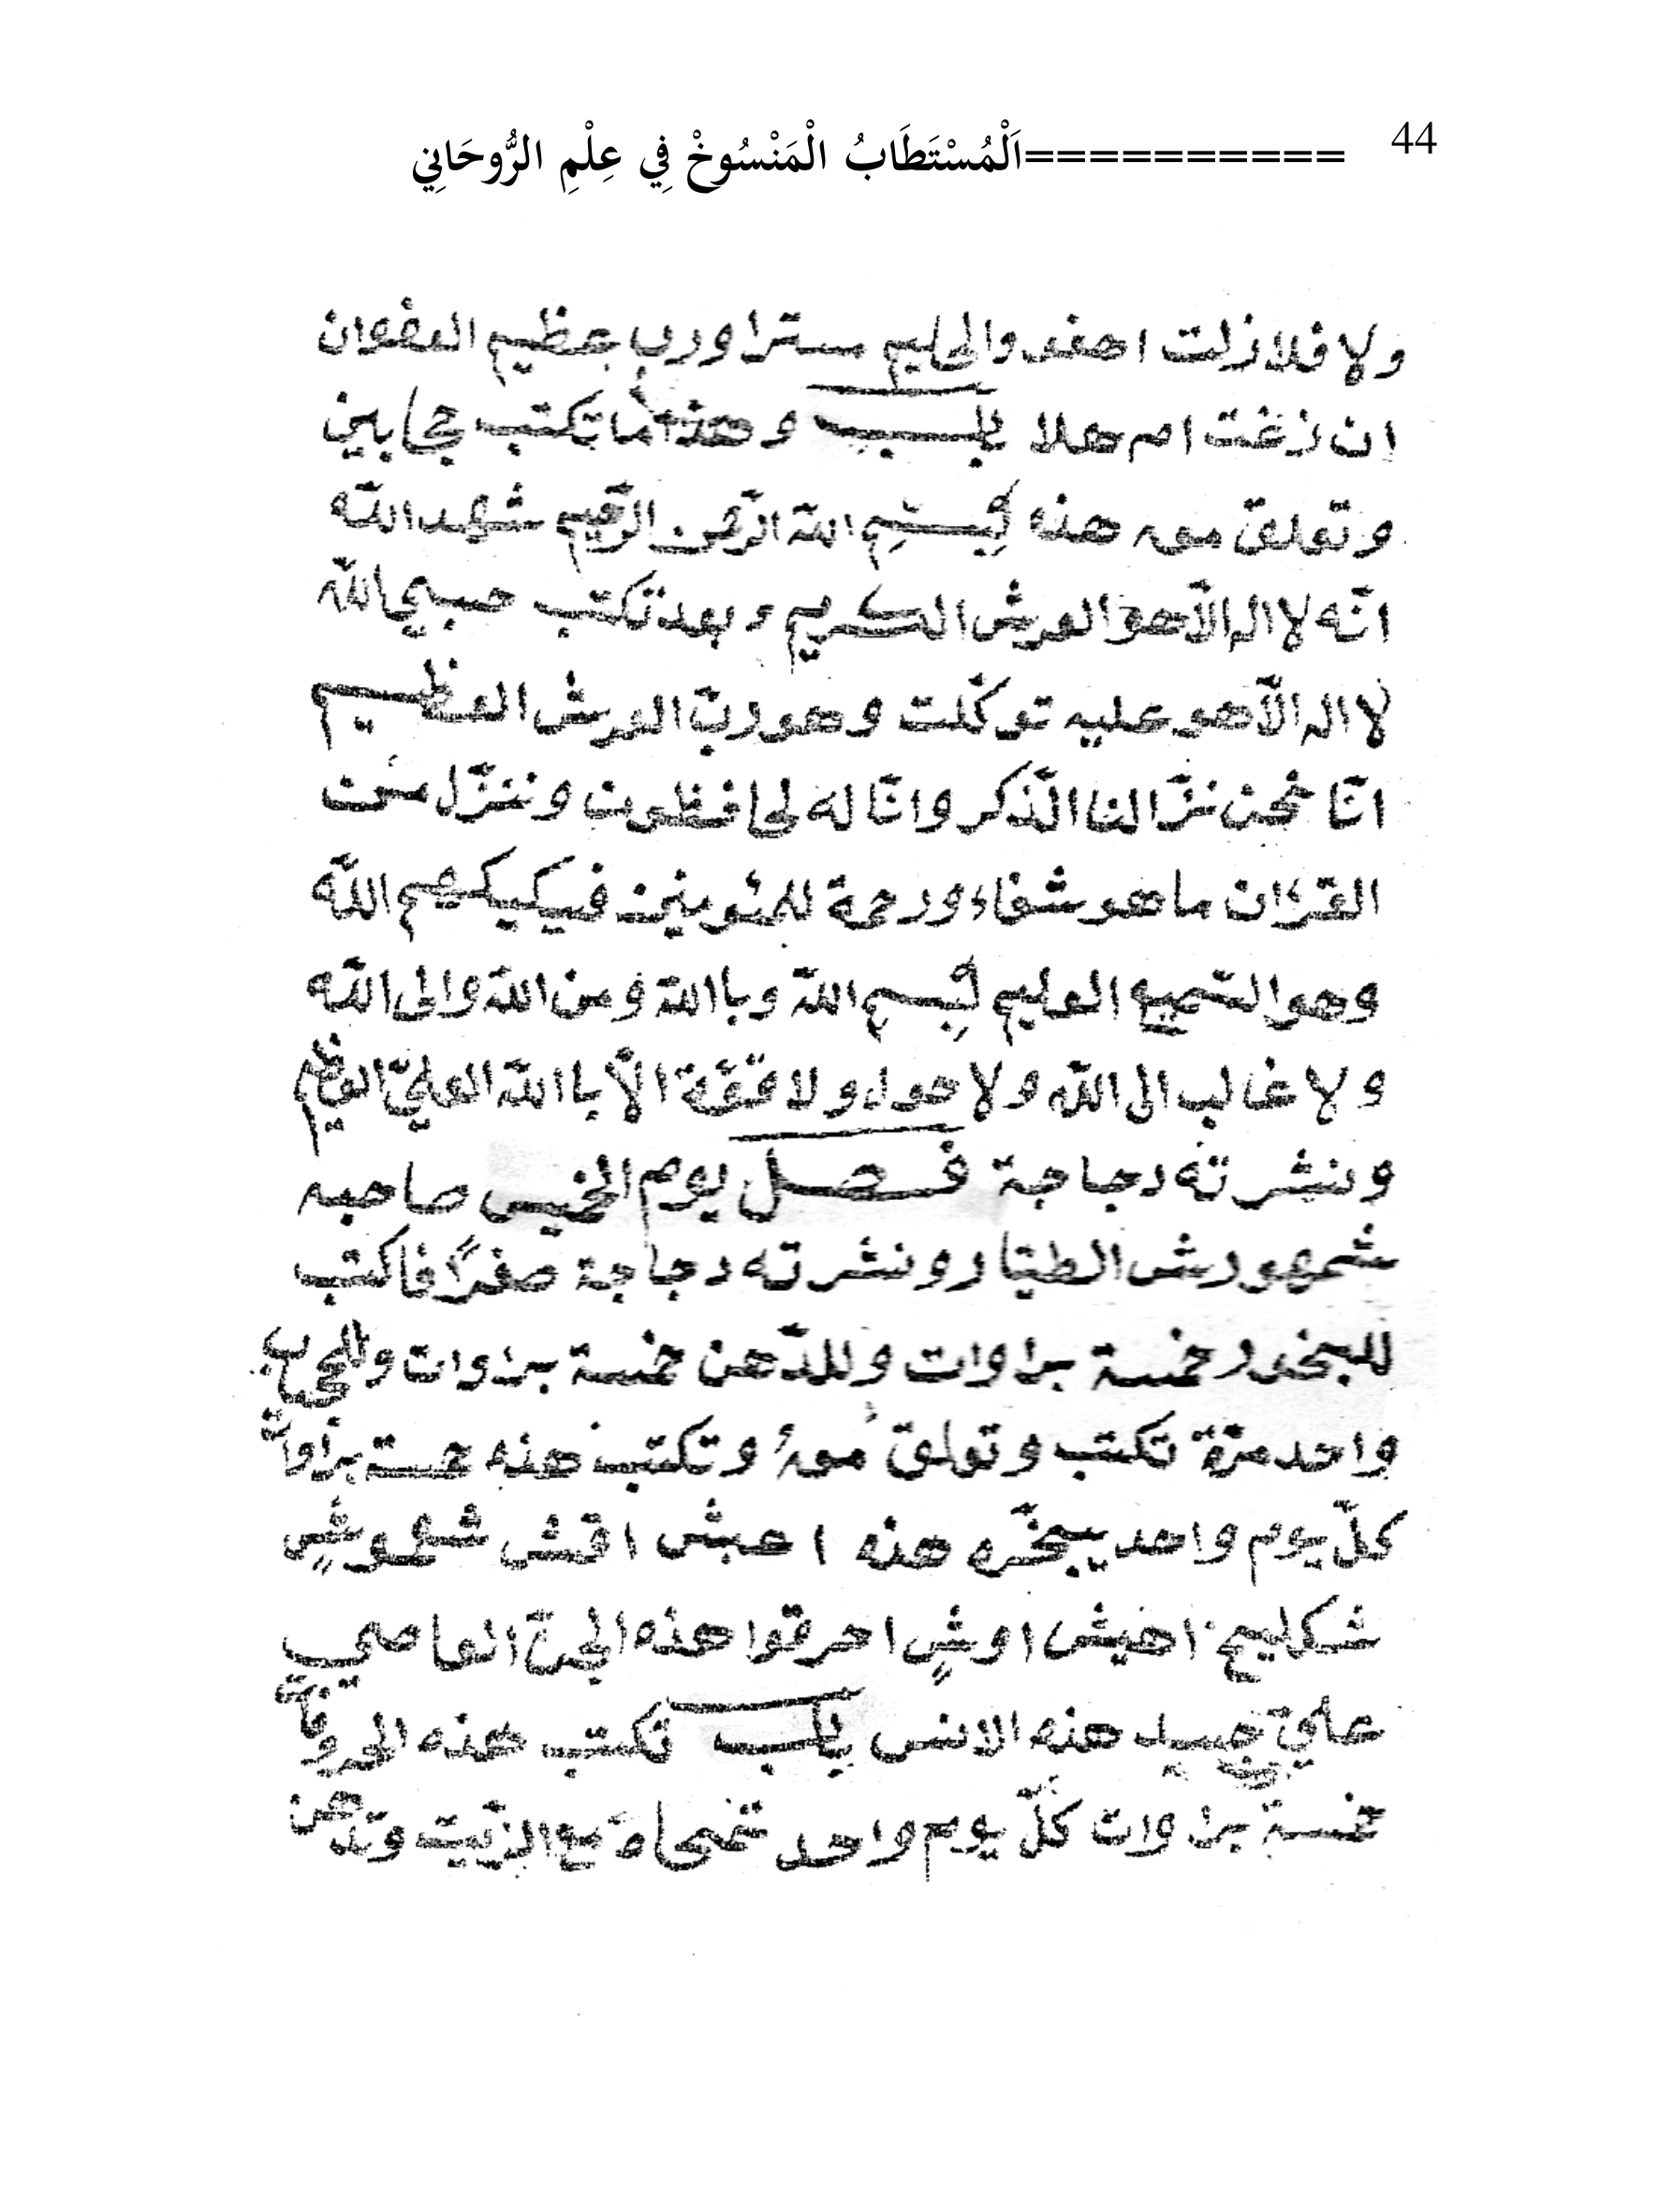 44
==========اَلْمُسْتَطَابُ الْمَنْسُوخْ فِي عِلْمِ الرُّوحَانِي
ولا فلا زلت احفد والحليم سترا ورب عظيم العفوان
ان زغت ام هلا وهذا ما تكتب حجابين
وتعلق معه هذه بِسْمِ اللّه الرّحمن الرّحيم شهد اللّه
انّه لا اله الّا هو العرش الكريم وبعد تكتب حسبي اللّه
لا اله الّا هو عليه توكّلت وهو ربّ العرش العظيم
انّا نحن نزّالنا الذّكر وانّا له لحافظون وننزّل من
القرءان ما هو شفاء ورحمة للمئومنين فسيكيكهم اللّه
وهو السّميع العليم بِسم اللّه وباالله ومن اللّه والى اللّه
ولا غالب الى اللّه ولا حول ولا قوّة الّا باالله العليّ العظيم
وننشرته دجاجة فصل يوم الخميس صاحبه
شمهورش الطيّار ونشرته دجاجة صفرًا فاكتب
للبخور خمسة براوات وللدّهن خمسة براوات وللحجاب
واحد مرّة تكتب وتعلق معهُ وتكتب هذه خمسة براوات
كلّ يوم واحد يبخّره هذه احبش اقش
اهيش اوشٍ احرقوا هذه الجنّ العاصي
على جسد هذه الانس تكتب هذه الحروفات
خمسة براوات كلّ يوم واحد تمحاهَ مع الزّيت وتدّهن